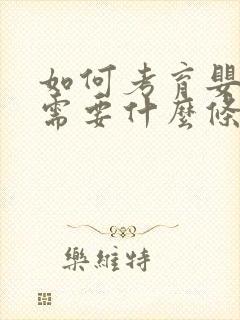 如何考育嬰
需要什麼條
樂維特